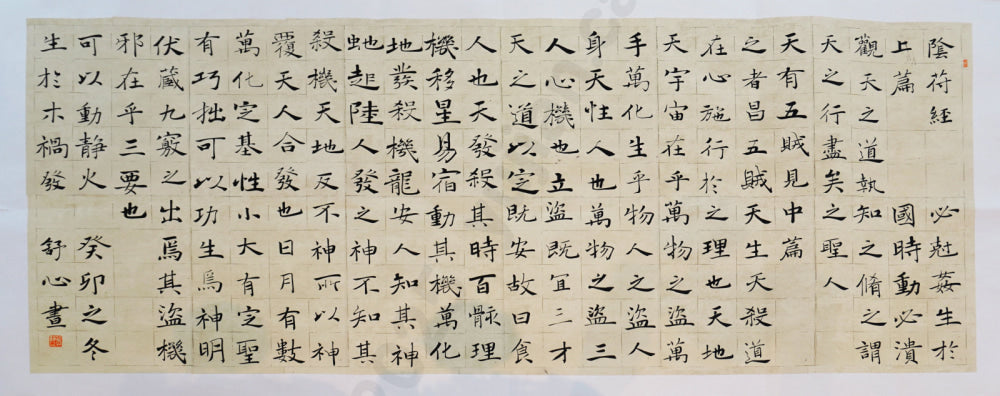 陰符經
上篇
觀天之道執
天之行盡矣
天有五賊見
之者昌五賊
在心施行於
天宇宙在乎
手萬化生乎
身天性人也
人心機也立
天之道以定
人也天發殺
機移星易宿
地發殺機龍
虵起陸人發
殺機天地反
覆天人合發
萬化定基性
有巧拙可以
伏藏九竅之
邪在乎三要
可以動靜火
生於木禍發
必尅姦生於
國時動必潰
知之脩之謂
之聖人
中篇
天生天殺道
之理也天地
萬物之盜萬
物人之盜人
萬物之盜三
盜既宜三才
既安故曰食
其時百骸理
動其機萬化
安人知其神
之神不知其
不神所以神
也日月有數
小大有定聖
功生焉神明
出焉其盜機
也
癸卯之冬
舒心書